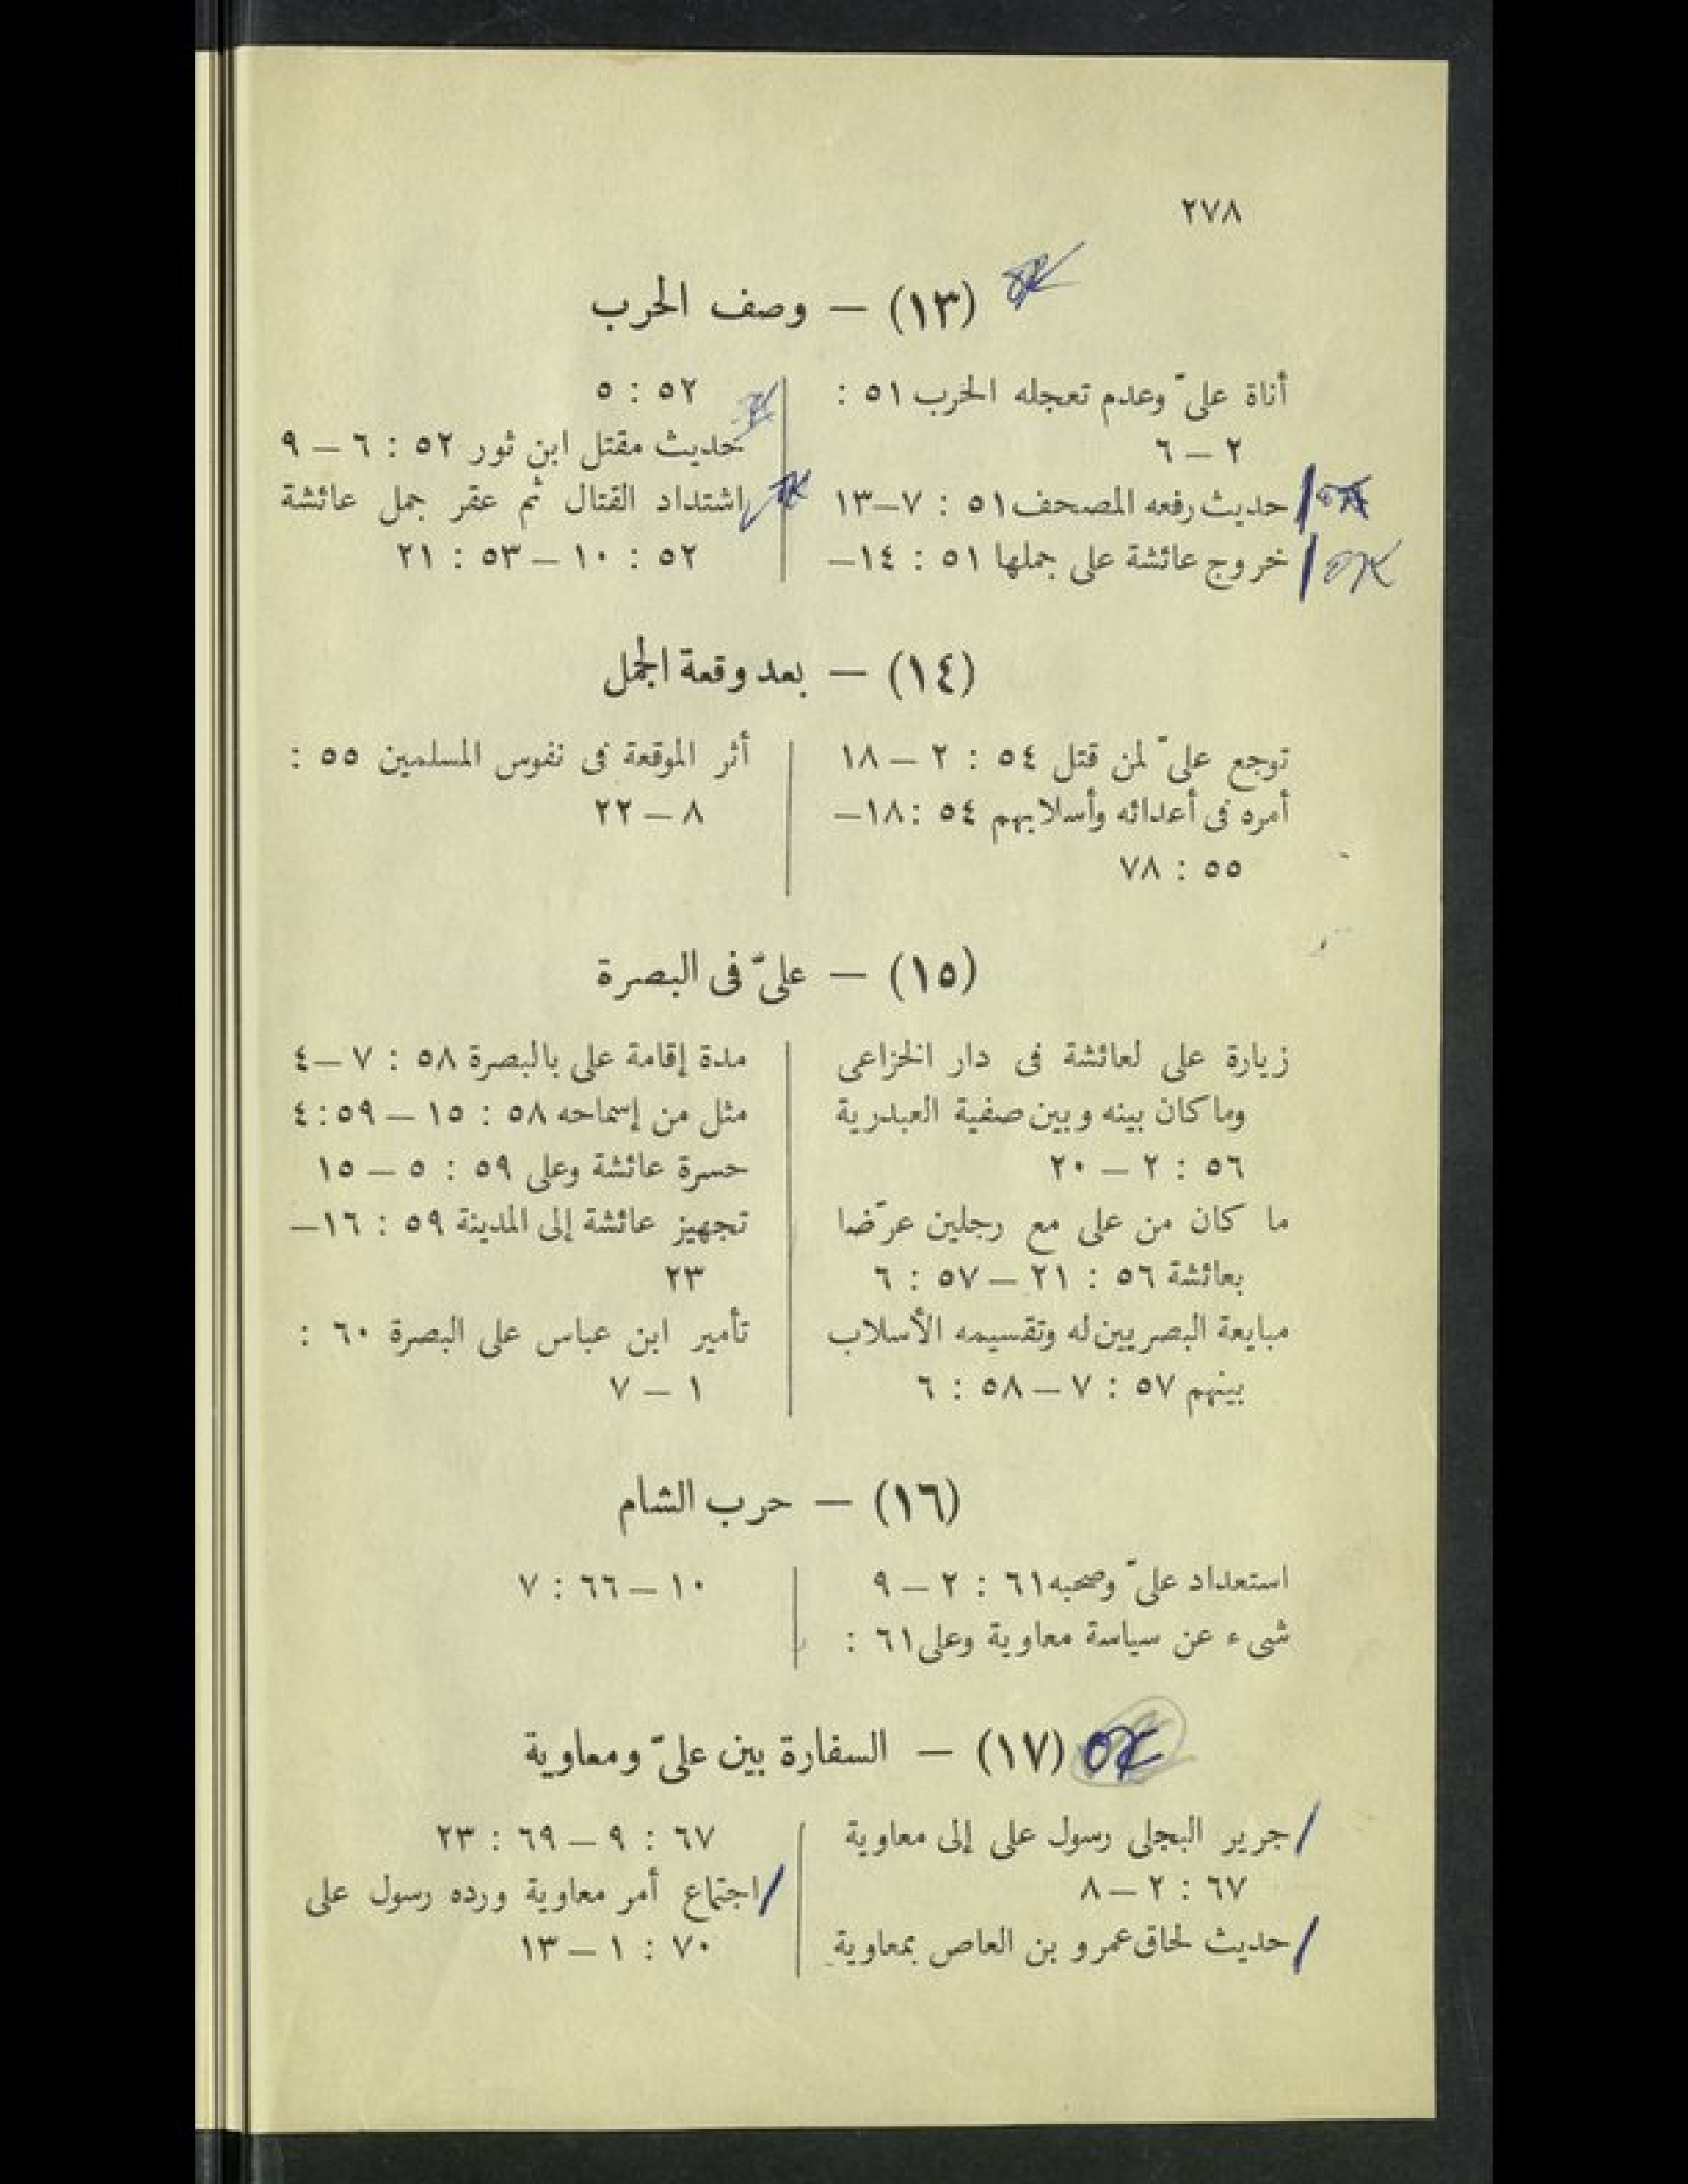 ٢٧٨
(١٣) — وصف الحرب OK
أناة علىّ وعدم تعجله الحرب ٥١ :
٢ – ٦
حديث رفعه المصحف ٥١ : ٧–١٣ OK
خروج عائشة على جملها ٥١ : ١٤– OK
٥٢ : ٥
حديث مقتل ابن ثور ٥٢ : ٦ – ٩
اشتداد القتال ثم عقر جمل عائشة OK
٥٢ : ١٠ – ٥٣ : ٢١
(١٤) — بعد وقعة الجمل
توجع علىّ لمن قتل ٥٤ : ٢ – ١٨
أمره فى أعدائه وأسلابهم ٥٤ : ١٨–
٥٥ : ٧٨
أثر الموقعة فى نفوس المسلمين ٥٥ :
٨ – ٢٢
(١٥) — علىّ فى البصرة
زيارة على لعائشة فى دار الخزاعى
وما كان بينه وبين صفية العبدرية
٥٦ : ٢ – ٢٠
ما كان من على مع رجلين عرّضا
بعائشة ٥٦ : ٢١ – ٥٧ : ٦
مبايعة البصريين له وتقسيمه الأسلاب
بينهم ٥٧ : ٧ – ٥٨ : ٦
مدة إقامة على بالبصرة ٥٨ : ٧ – ٤
مثل من إسماحه ٥٨ : ١٥ – ٥٩ : ٤
حسرة عائشة وعلى ٥٩ : ٥ – ١٥
تجهيز عائشة إلى المدينة ٥٩ : ١٦–
٢٣
تأمير ابن عباس على البصرة ٦٠ :
١ – ٧
(١٦) — حرب الشام
استعداد علىّ وصحبه ٦١ : ٢ – ٩
شىء عن سياسة معاوية وعلى ٦١ :
١٠ – ٦٦ : ٧
(١٧) — السفارة بين علىّ ومعاوية OK
جرير البجلى رسول على إلى معاوية
٦٧ : ٢ – ٨
حديث لحاق عمرو بن العاص بمعاوية
٦٧ : ٩ – ٦٩ : ٢٣
اجتماع أمر معاوية ورده رسول على
٧٠ : ١ – ١٣